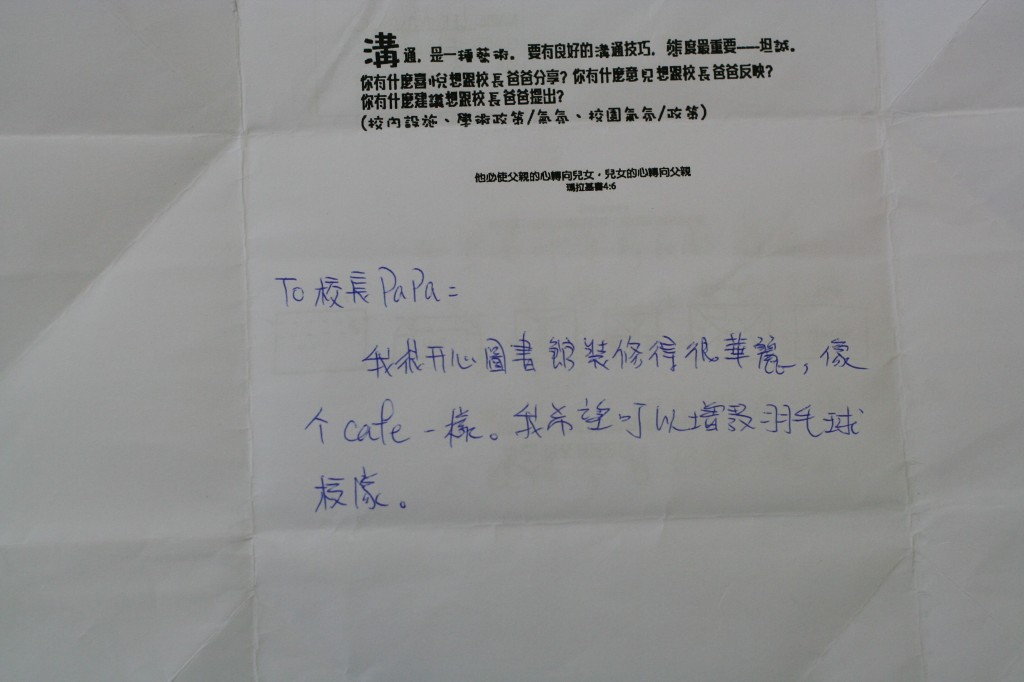 溝通，是一種藝術。要有良好的溝通技巧，態度最重要——坦誠。
你有什麼喜悅想跟校長爸爸分享？你有什麼意見想跟校長爸爸反映？
你有什麼建議想跟校長爸爸提出？
(校內設施、學術政策/氣氛、校園氣氛/政策)
他必使父親的心轉向兒女，兒女的心轉向父親
瑪拉基書4:6
To 校長 PaPa：
我很开心圖書館裝修得很華麗，像
个 cafe 一樣。我希望可以增設羽毛球
校隊。